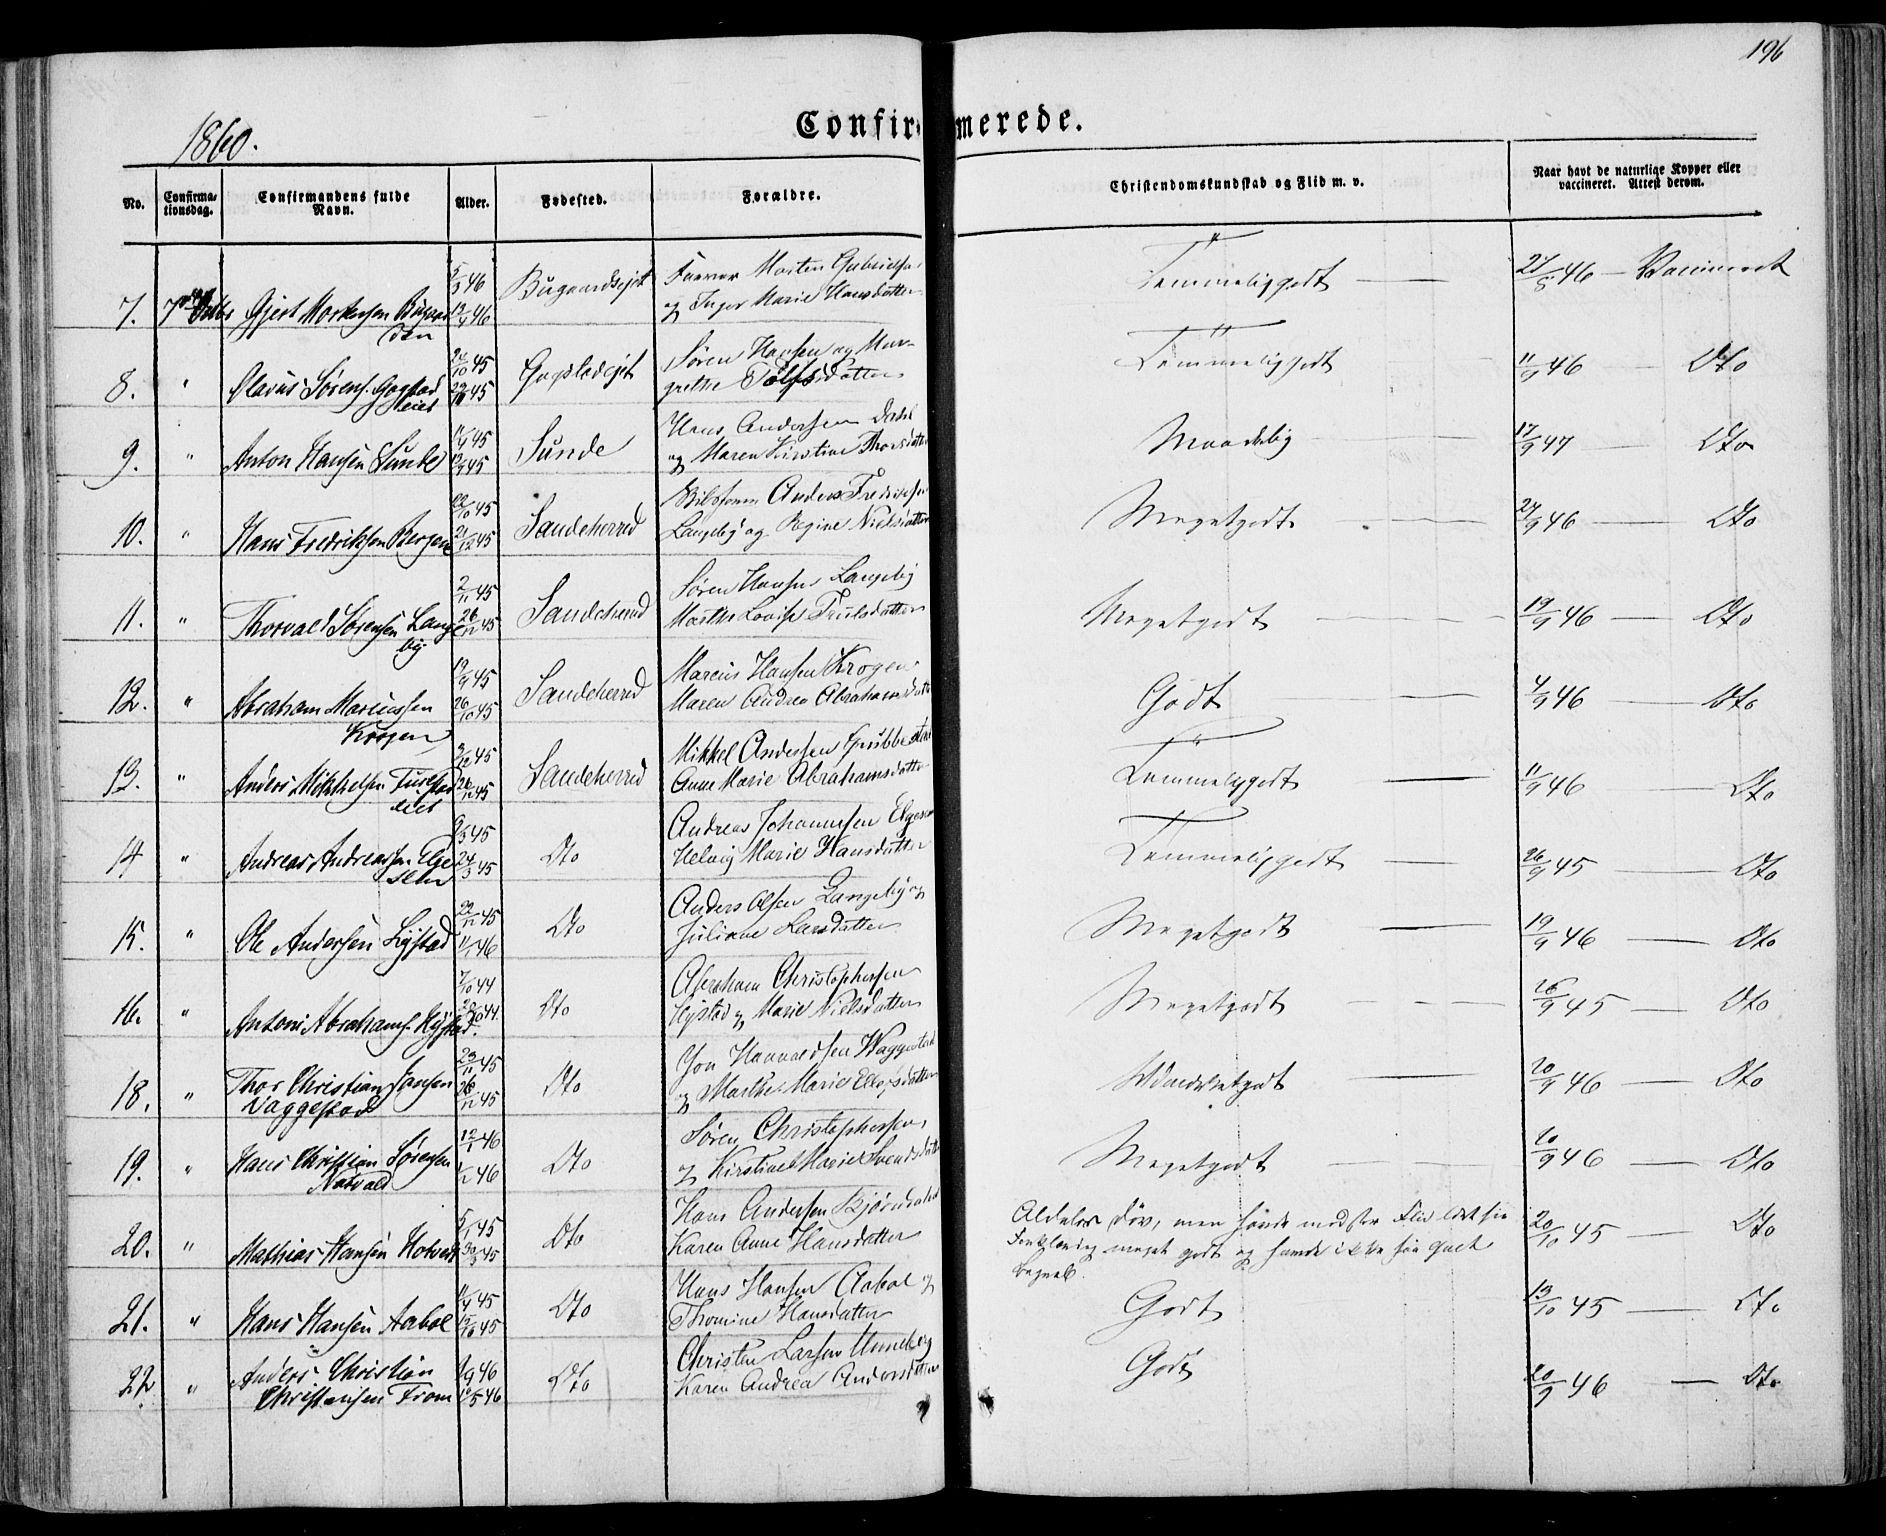 196
1860.
Confirmerede.
No.
Confirma-
tionsdag.
Confirmandens fulde
Navn.
Alder.
Fødested.
Forældre.
Christendomskundskab og Flid m. v.
Naar havt de naturlige Kopper eller
vaccineret. Attest derom.
7. 7 Octbr Gjert Mortensen 5/3 46 Morten
og Inger Marie Hansdatter Temmeliggodt 27/8 46 — Vaccineret
8. " Olavus Sørens. Gogstad
eiet 45 45 Gogstadejet Søren Hansen og Mar-
grethe datter Temmeliggodt 11/9 46 — Dto
9. " Anton Hansen Sunde 45 45 Sunde Hans Andersen
og Maren Kirstine Thorsdatter Maadelig 17/9 47 — Dto
10. " Hans Fredriksen Bergen 22/10 45 21/12 45 Sandeherred Anders Fredriksen
Langeby og Regine Nielsdatter Megetgodt 24/9 46 — Dto
11. " Thorvald Sørensen Lange
by 2/11 45 26/12 45 Sandeherred Søren Hansen Langeby
Marthe Lovise Trulsdatter Megetgodt 19/9 46 — Dto
12. " Abraham Marcussen
Krogen 19/9 45 26/10 45 Sandeherred Marcus Hansen Krogen
Maren Andrea Abrahamsdatter Godt 4/9 46 — Dto
13. " Anders Mikkelsen
eiet 9/12 45 26/12 45 Sandeherred Mikkel Andersen
Anne Marie Abrahamsdatter Temmeliggodt 11/9 46 — Dto
14 " Andreas Andreassen Elge
sem 9/3 45 24/3 45 Dto Andreas Johannesen Elgesem
Helvig Marie Hansdatter Temmeliggodt 26/9 45 — Dto
15. " Ole Andersen 22/11 45 1/1 46 Dto Anders Olsen Langeby og
Juliane Larsdatter Megetgodt 19/9 46 — Dto
16. " Anton Abrahams. Hystad. 7/10 44 44. Dto Abraham Christophersen
Hystad og Marie Nielsdatter Megetgodt 16/9 45 — Dto
18. " Thor Christian Jonsen
Vaggestad 23/11 45 26/12 45 Dto Jon Vaggestad
og Marthe Marie datter godt 20/9 46 — Dto
19. " Hans Christian Sørensen
12/1 46 46 Dto Søren Christophersen
og Kirstine Marie Svendsdatter Megetgodt 20/9 46 — Dto
20. " Mathias Hansen 5/1 45 30/3 45 Dto Hans Andersen Bjørndalen
Karen Anne Hansdatter Aldeles døv, men havde med stor Flid lært sin
Forklaring meget godt og havde ikke saa gandt
Begreb. 20/10 45 — Dto
21. " Hans Hansen Aabol 11/4 45 45 Dto Hans Hansen Aabol og
Thomine Hansdatter Godt 13/10 45 — Dto
22 " Anders Christian
Christensen From 46 46 Dto Christen Larsen Unneberg
Karen Andrea Andersdatter Godt 20/9 46 — Dto